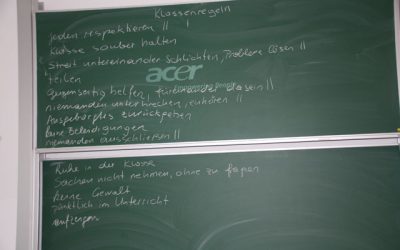 Klassenregeln
jeden respektieren || |
Klasse sauber halten
Streit untereinander schlichten, Probleme lösen ||
teilen
acer
gegenseitig helfen, füreinander da sein ||
niemanden unterbrechen, zuhören ||
Ausgeborgtes zurückgeben
keine Beleidigungen
niemanden ausschließen ||
Ruhe in der Klasse
Sachen nicht nehmen, ohne zu fragen
keine Gewalt
pünktlich im Unterricht
aufzeigen